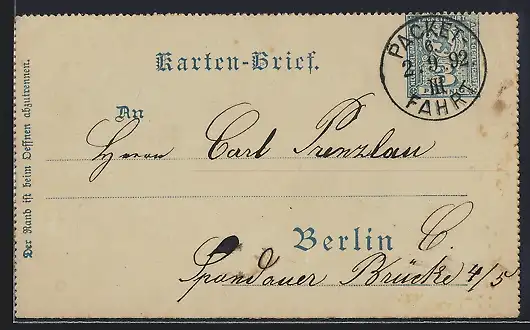 Karten-Brief.
PACKET-
6-
2.9.92
III.
FAHRT
3
An
Herrn Carl Prenzlau
Berlin C.
Spandauer Brücke 4/5
Der Rand ist beim Oeffnen abzutrennen.